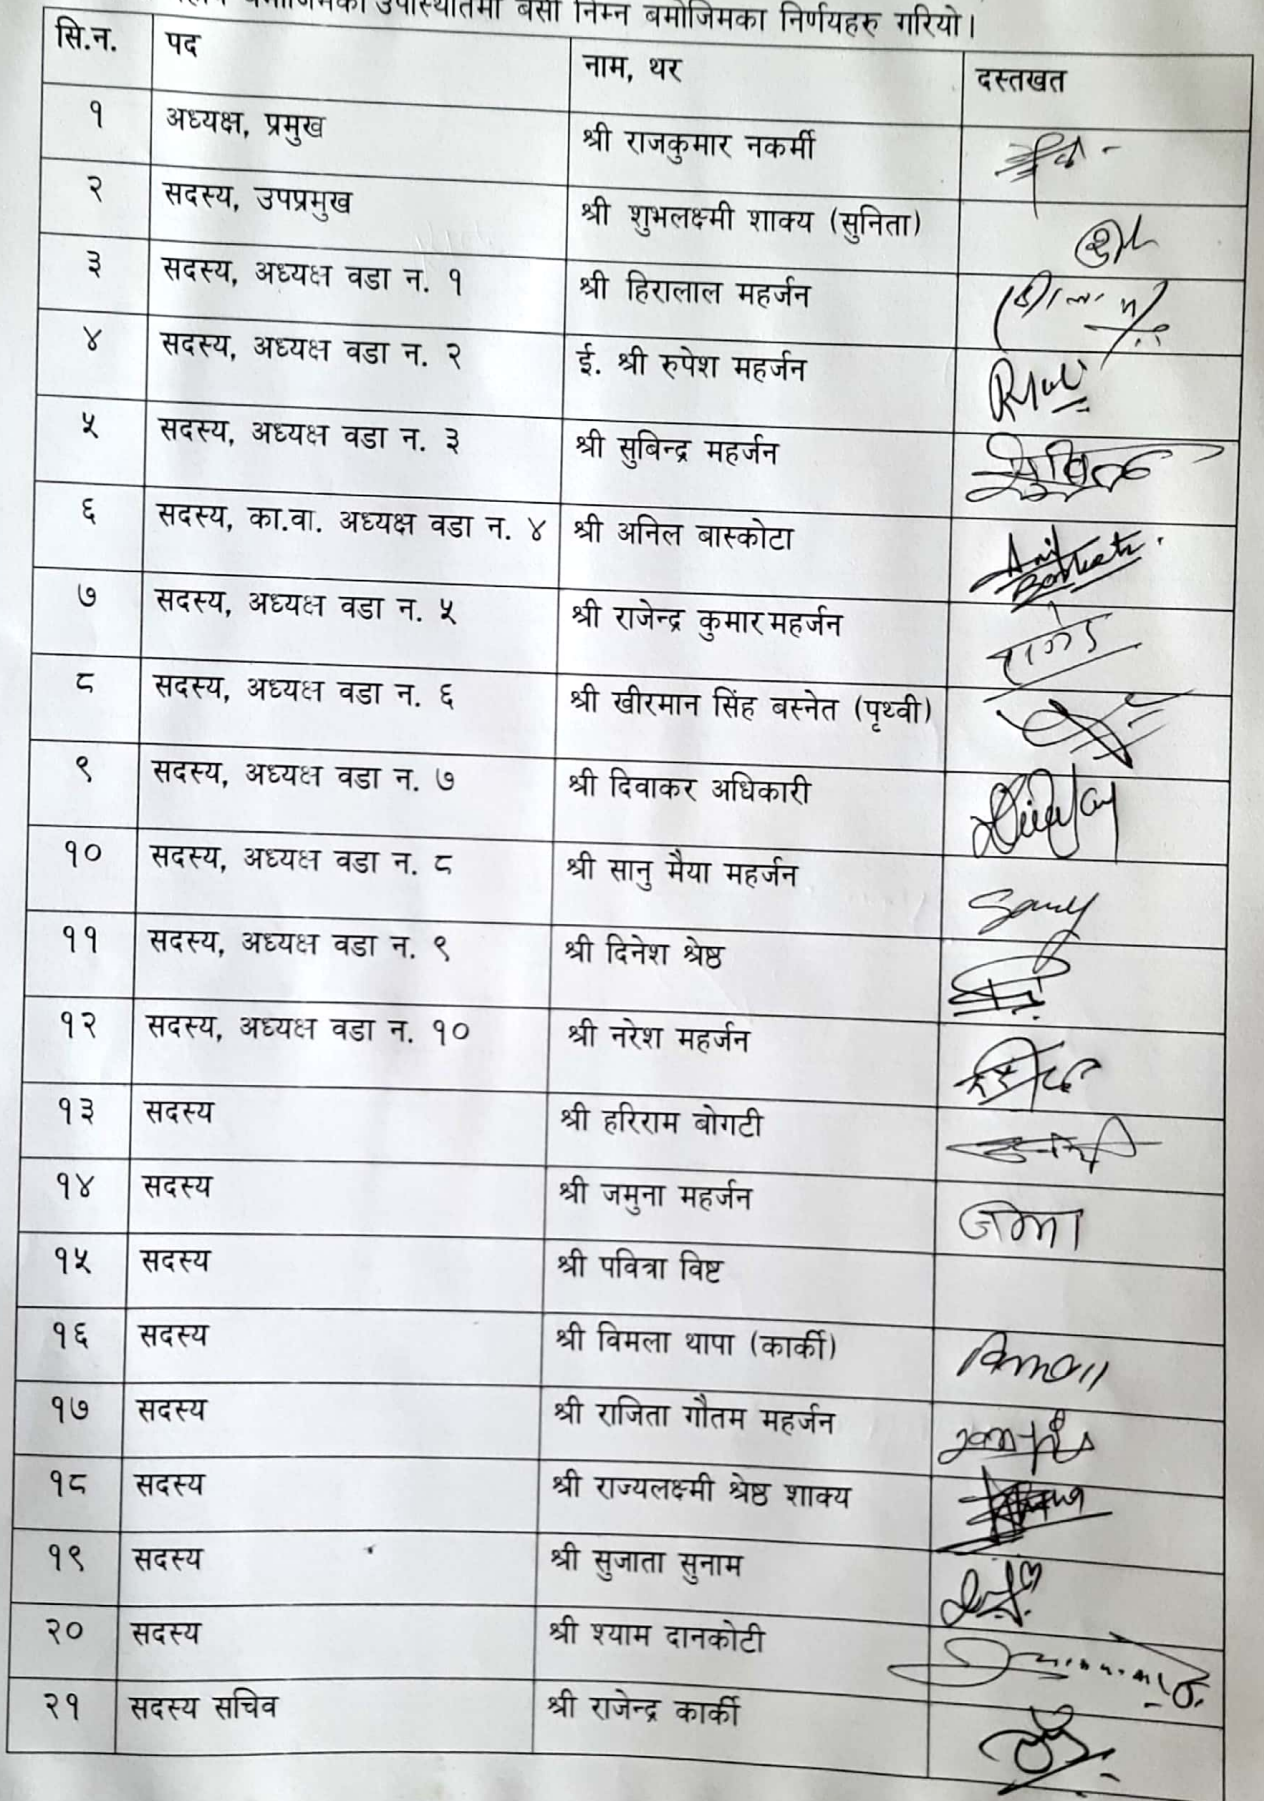 बमोजिमका उपस्थितिमा बसी निम्न बमोजिमका निर्णयहरु गरियो।
सि.न. पद नाम, थर दस्तखत
१ अध्यक्ष, प्रमुख श्री राजकुमार नकर्मी
२ सदस्य, उपप्रमुख श्री शुभलक्ष्मी शाक्य (सुनिता)
३ सदस्य, अध्यक्ष वडा न. १ श्री हिरालाल महर्जन
४ सदस्य, अध्यक्ष वडा न. २ ई. श्री रुपेश महर्जन
५ सदस्य, अध्यक्ष वडा न. ३ श्री सुबिन्द्र महर्जन
६ सदस्य, का.वा. अध्यक्ष वडा न. ४ श्री अनिल बास्कोटा
७ सदस्य, अध्यक्ष वडा न. ५ श्री राजेन्द्र कुमार महर्जन
८ सदस्य, अध्यक्ष वडा न. ६ श्री खीरमान सिंह बस्नेत (पृथ्वी)
९ सदस्य, अध्यक्ष वडा न. ७ श्री दिवाकर अधिकारी
१० सदस्य, अध्यक्ष वडा न. ८ श्री सानु मैया महर्जन
११ सदस्य, अध्यक्ष वडा न. ९ श्री दिनेश श्रेष्ठ
१२ सदस्य, अध्यक्ष वडा न. १० श्री नरेश महर्जन
१३ सदस्य श्री हरिराम बोगटी
१४ सदस्य श्री जमुना महर्जन
१५ सदस्य श्री पवित्रा विष्ट
१६ सदस्य श्री विमला थापा (कार्की)
१७ सदस्य श्री राजिता गौतम महर्जन
१८ सदस्य श्री राज्यलक्ष्मी श्रेष्ठ शाक्य
१९ सदस्य श्री सुजाता सुनाम
२० सदस्य श्री श्याम दानकोटी
२१ सदस्य सचिव श्री राजेन्द्र कार्की